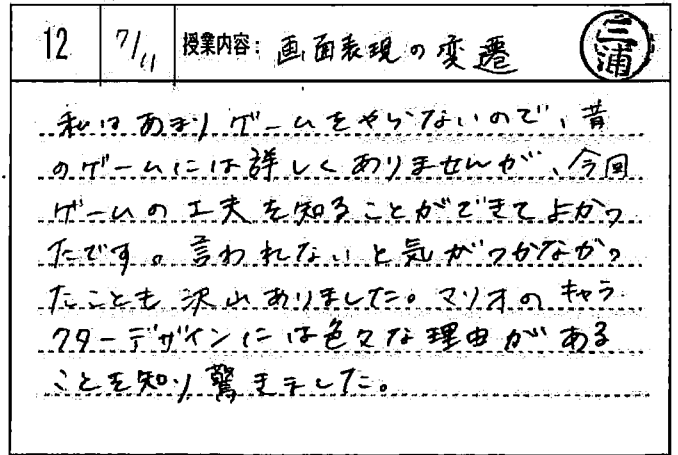 12 7/11 授業内容: 画面表現の変遷 三浦
私はあまりゲームをやらないので、昔
のゲームには詳しくありませんが、今回
ゲームの工夫を知ることができてよかっ
たです。言われないと気がつかなかっ
たことも沢山ありました。マリオのキャラ
クターデザインには色々な理由がある
ことを知り驚きました。